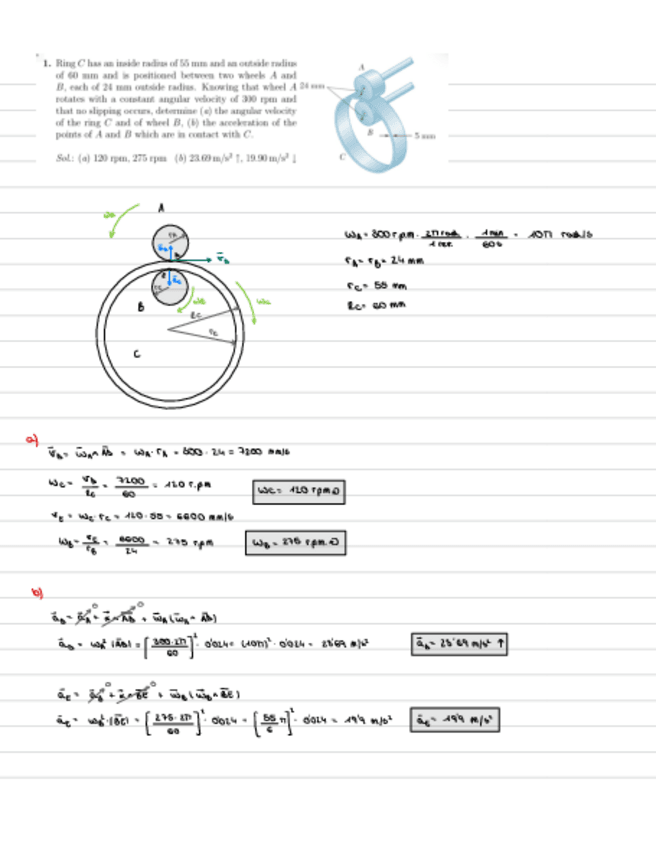 1. Ring C has an inside radius of 55 mm and an outside radius
of 60 mm and is positioned between two wheels A and
B, each of 24 mm outside radius. Knowing that wheel A
rotates with a constant angular velocity of 300 rpm and
that no slipping occurs, determine (a) the angular velocity
of the ring C and of wheel B, (b) the acceleration of the
points of A and B which are in contact with C.
Sol.: (a) 120 rpm, 275 rpm (b) 23.69 m/s² ↑, 19.90 m/s² ↓
A
24 mm
B
5 mm
C
A
ωA
rA
B
ωB
ωC
RC
rC
C
ωA = 300 r.p.m · 2π rad / 1 rev · 1 min / 60 s = 10π rad/s
rA = rB = 24 mm
rC = 55 mm
RC = 60 mm
a)
= ωA · rA = 300 · 24 = 7200 mm/s
ωC = = 7200 / 60 = 120 r.p.m
ωC = 120 rpm ↻
vE = ωC · rC = 120 · 55 = 6600 mm/s
ωB = vE / rB = 6600 / 24 = 275 rpm
ωB = 275 r.p.m ↻
b)
[300·2π / 60]² · 0'024 = (10π)² · 0'024 = 23'69 m/s²
= 23'69 m/s² ↑
āE = ωB² · |BE| = [275·2π / 60]² · 0'024 = [55 / 6 π]² · 0'024 = 19'9 m/s²
āE = 19'9 m/s²